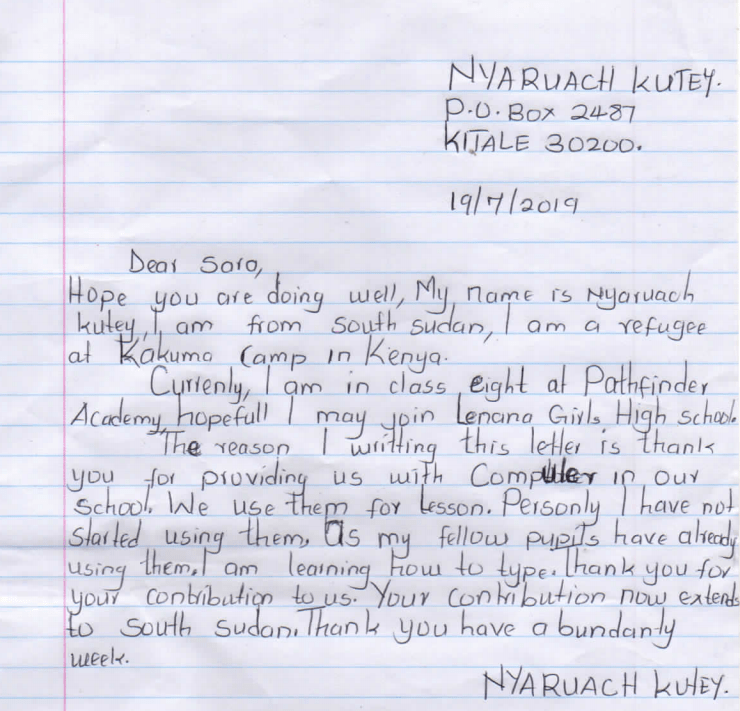 NYARUACH KUTEY.
P.O. BOX 2487
KITALE 30200.
19/7/2019
Dear Soro,
Hope you are doing well, My name is Nyaruach
kutey, I am from South sudan, I am a refugee
at Kakuma Camp in Kenya.
Currenly, I am in class eight at Pathfinder
Academy, hopefull I may join Lenana Girls High school.
The reason I writting this letter is thank
you for providing us with Computer in our
school. We use them for Lesson. Personly I have not
started using them. As my fellow pupils have already
using them. I am learning how to type. Thank you for
your contribution to us. Your contribution now extends
to South Sudan. Thank you have abundantly
week.
NYARUACH KUTEY.